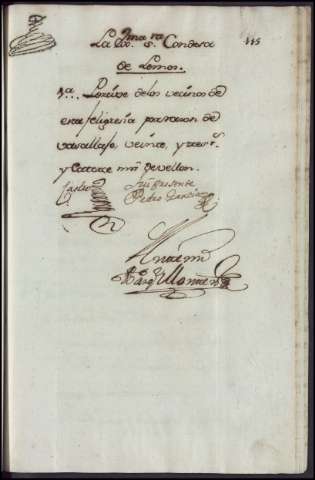 115
La ex.ma s.ra Condesa
de Lemos.
1a... Percive de los vecinos de
esta feligresia por razon de
vasallaje veinte, y tres r.s
y catorce mrs de vellon.
Castro
Fui presente
Pedro Garcia
Ante mi